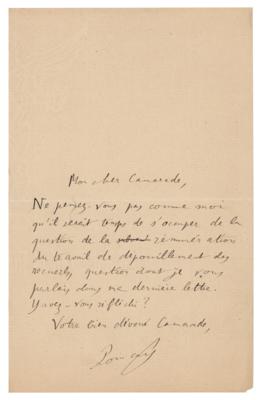 Mon cher Camarade,
Ne pensez-vous pas comme moi
qu'il serait temps de s'occuper de la
question de la rémunération
du travail de dépouillement des
recueils, question dont je vous
parlais dans ma dernière lettre.
Y avez-vous réfléchi ?
Votre bien dévoué Camarade,